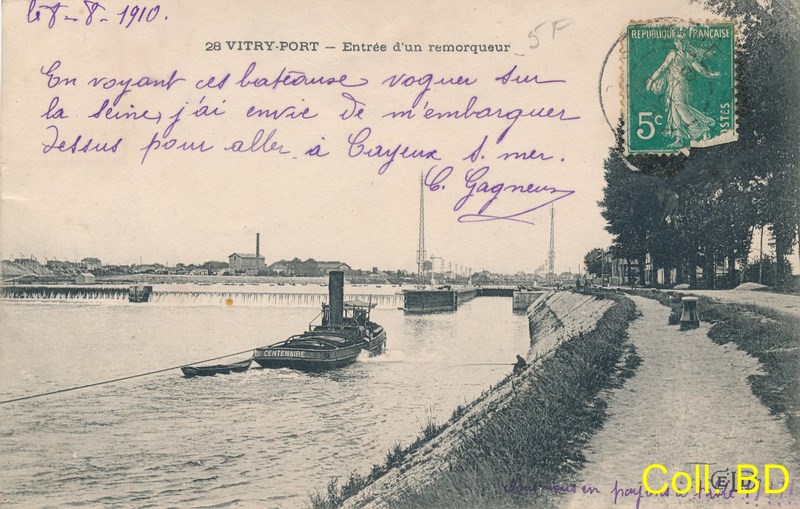 le 8-8-1910.
5F
28 VITRY-PORT — Entrée d'un remorqueur
REPUBLIQUE FRANÇAISE
5c
POSTES
En voyant ces bateause voguer sur
la seine, j'ai envie de m'embarquer
dessus pour aller à Cayeux s. mer.
C. Gagneux
CENTENAIRE
en payons
ELD
Coll. BD